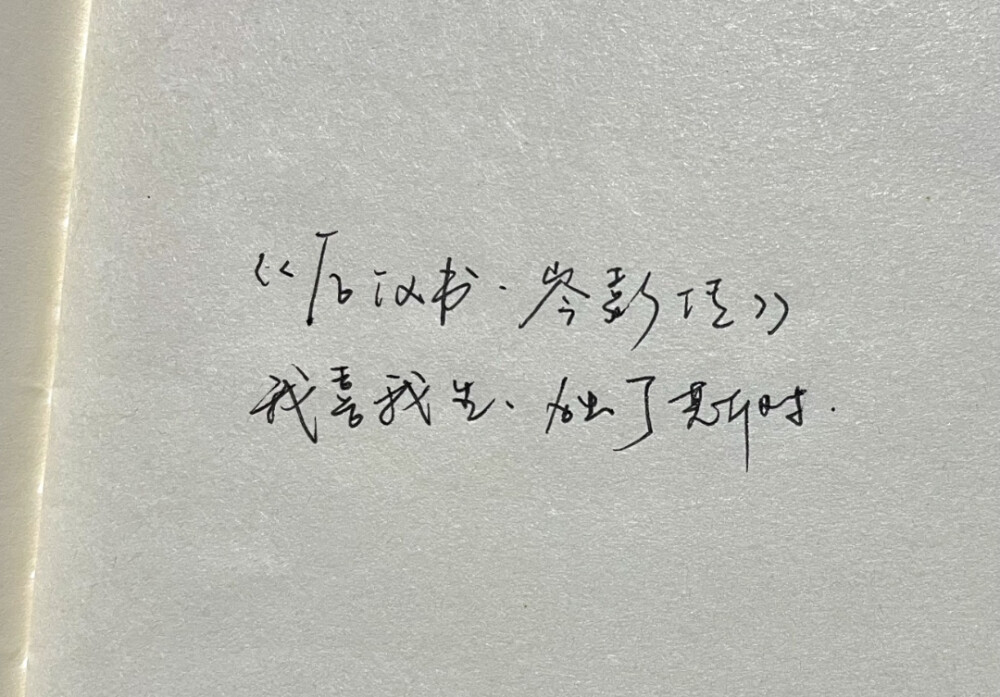 《后汉书·岑彭传》
我喜我生、独丁斯时.